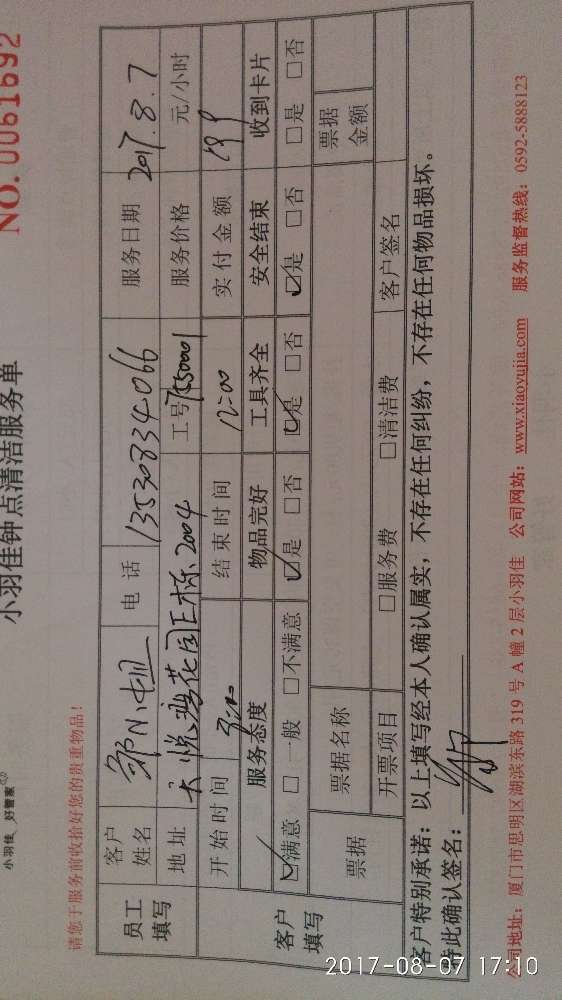 小羽佳 好管家
小羽佳钟点清洁服务单
NO. 0061692
请您于服务前收拾好您的贵重物品！
员工填写 客户姓名 电话 13530834066 服务日期 2017.8.7
地址 大悦湾花园E栋2004 工号 服务价格 元/小时
客户填写 开始时间 结束时间 12:00 实付金额
服务态度 物品完好 工具齐全 安全结束 收到卡片
☑满意 □一般 □不满意 ☑是 □否 ☑是 □否 ☑是 □否 □是 □否
票据 票据名称 票据金额
开票项目 □服务费 □清洁费 客户签名
客户特别承诺：以上填写经本人确认属实，不存在任何纠纷，不存在任何物品损坏。
特此确认签名：
公司地址：厦门市思明区湖滨东路 319 号 A 幢 2 层小羽佳 公司网站：www.xiaoyujia.com 服务监督热线：0592-5888123
2017-08-07 17:10